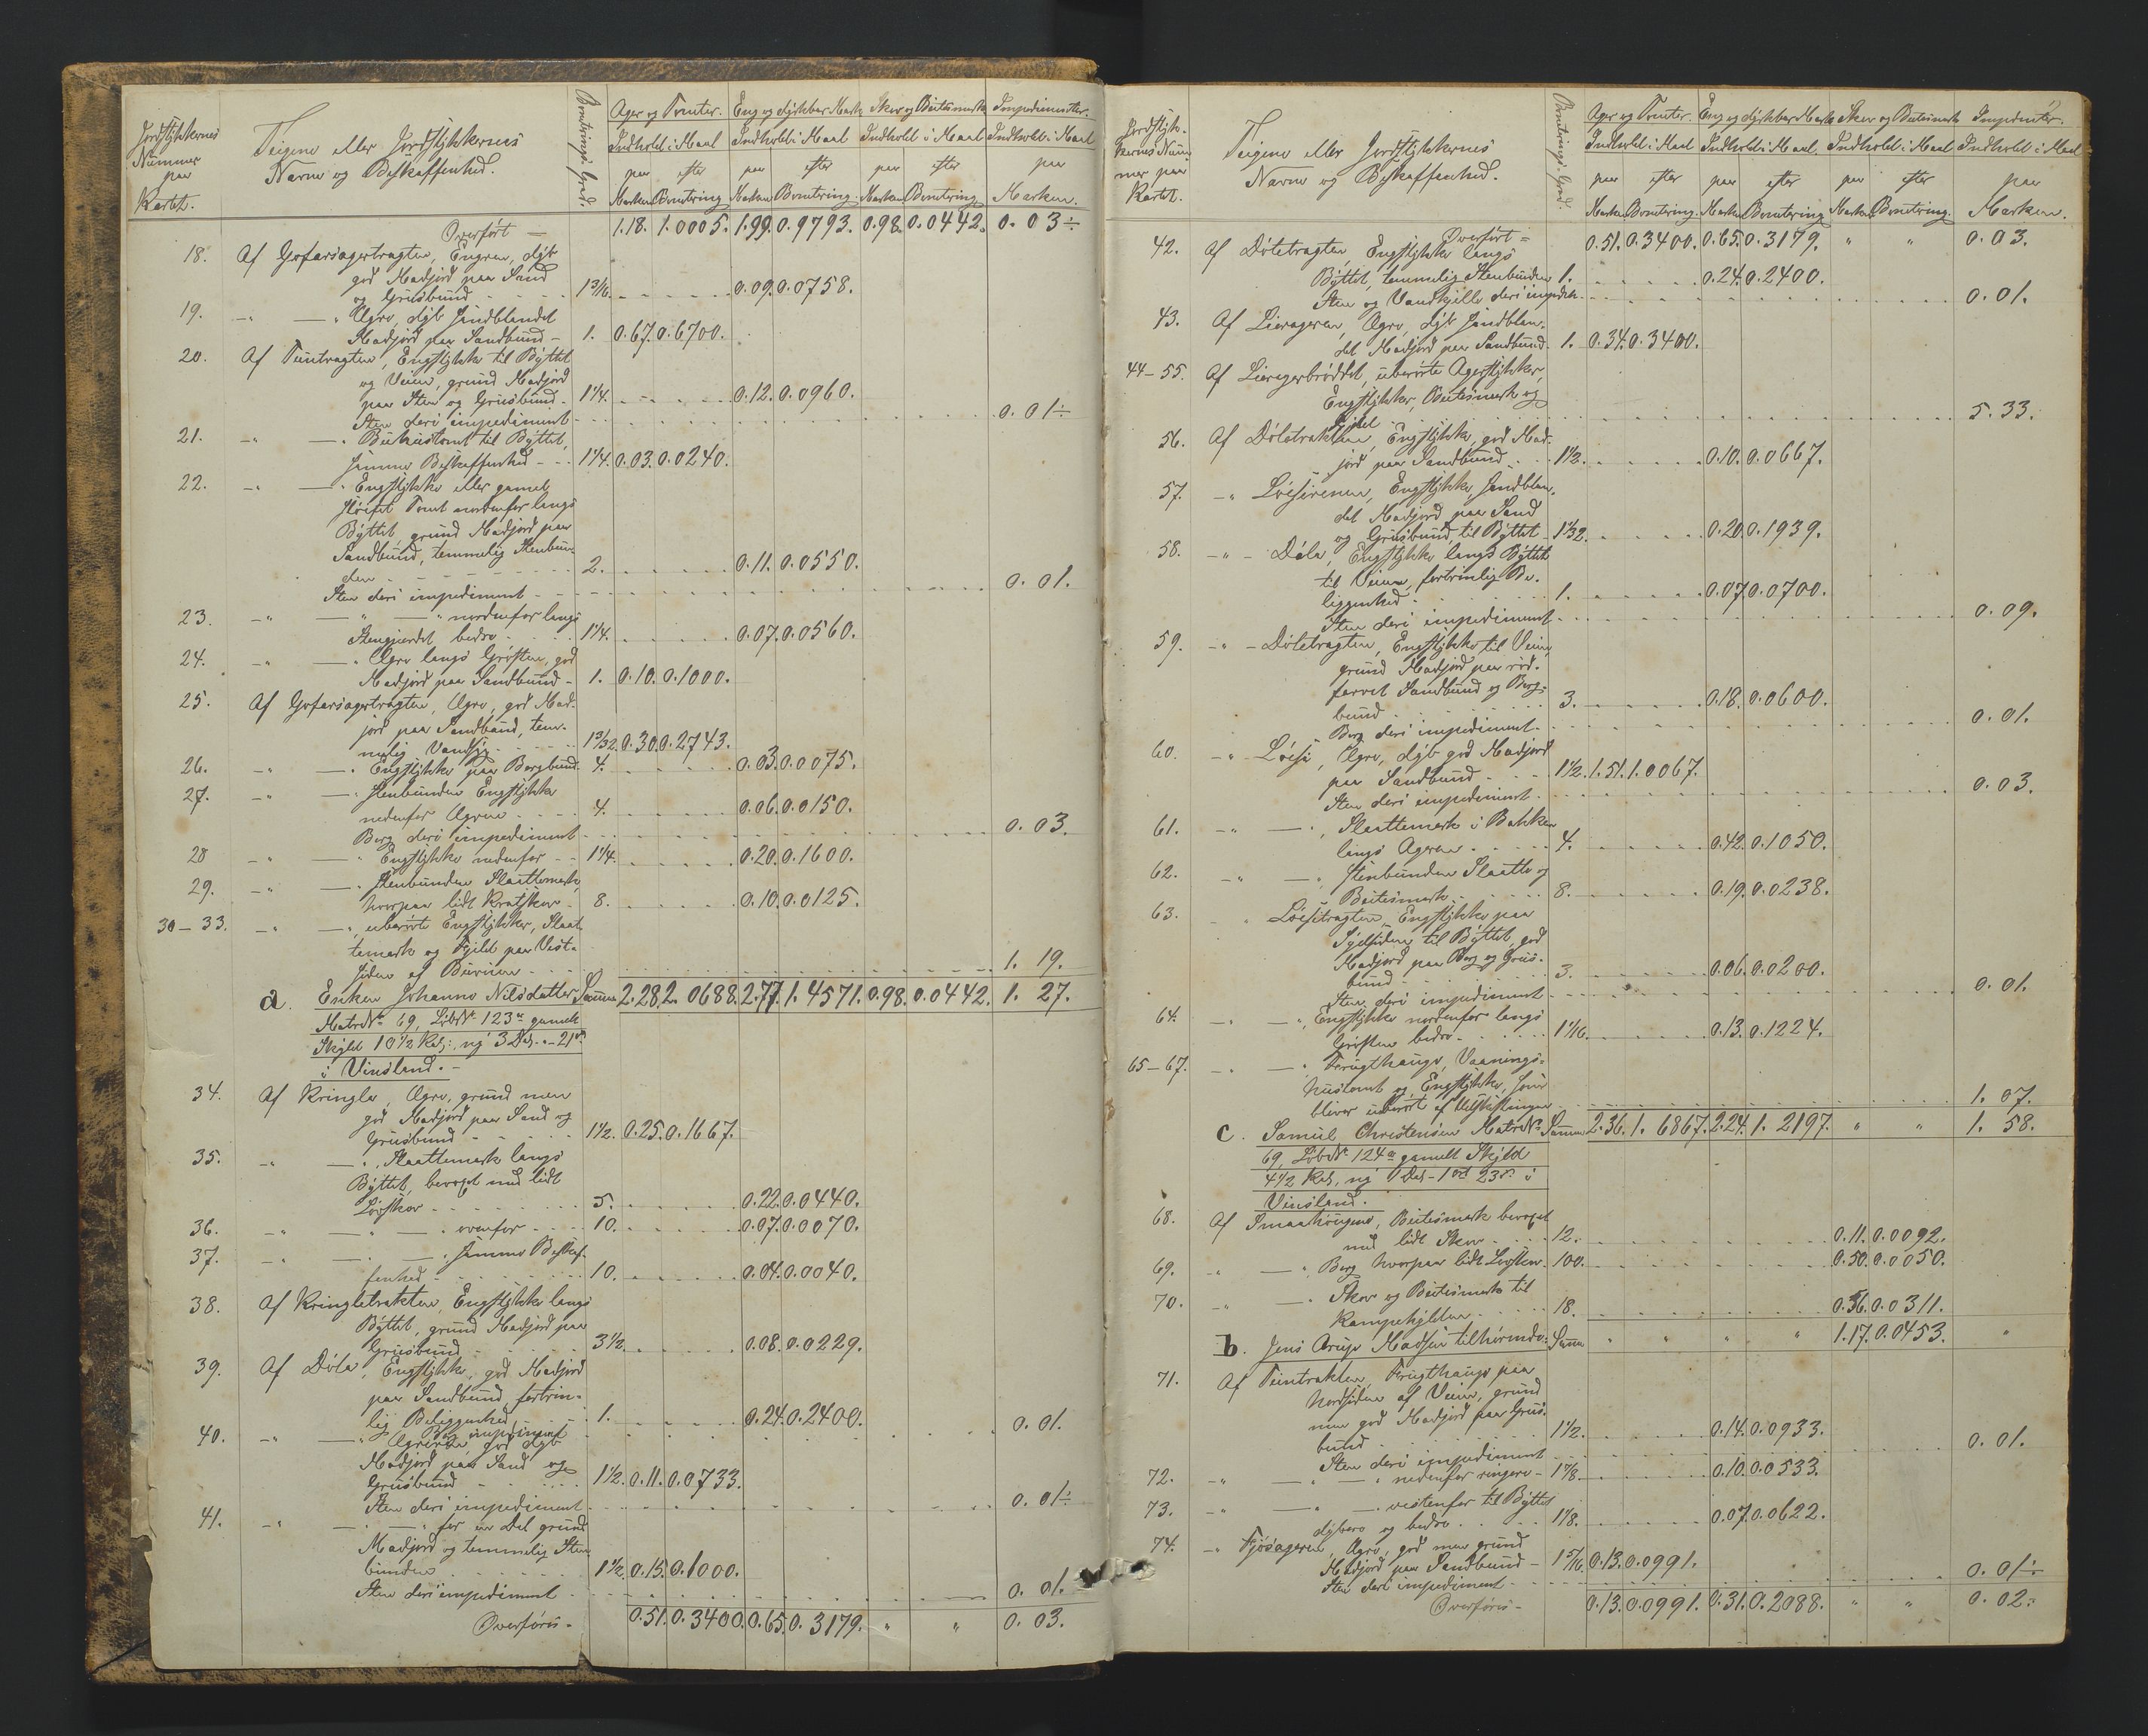 Jordstykkernes
Nummer
paa
Kartet.
Teigene eller Jordstykkernes
Navne og Beskaffenhed.
Boniterings Grad.
Ager og Tomter. Eng og dyrkbar Mark Skov og Beitesmark Impedimenter.
Indhold i Maal Indhold i Maal Indhold i Maal Indhold i Maal
paa efter paa efter paa efter paa
Marken Bonitering Marken Bonitering. Marken Bonitering Marken.
Overført — 1.18. 1.0005. 1.99. 0.9793. 0.98. 0.0442. 0.03÷
18. Af Gofarsagertragten, Engren, dyb
god Madjord paa Sand
og Gruusbund 1 3/16. 0.09. 0.0758.
19. —„ —„ Agre, dyb Sandblandet
Madjord paa Sandbund — 1. 0.67. 0.6700.
20. Af Tuntragten, Engstykke til Byttet
og Veien, grund Madjord
paa Sten og Gruusbund. 1 1/4. 0.12. 0.0960.
Sten deri impediment 0.01÷
21. —„ —„ Buhustomt til Byttet,
samme Beskaffenhed 1 1/4. 0.03. 0.0240.
22. —„ —„ Engstykke eller gamel
Tomt nordenfor langs
Byttet, grund Madjord paa
Sandbund, temmelig Stenbun-
den 2. 0.11. 0.0550.
Sten deri impediment 0.01.
23. —„ —„ —„ nordenfor langs
Stengjerdet bedre 1 1/4. 0.07. 0.0560.
24. —„ —„ Agre langs Grøften, god
Madjord paa Sandbund — 1. 0.10. 0.1000.
25. Af Gofarsagertragten, Agre, god Mad-
jord paa Sandbund, tem-
melig Vandsyg 1 3/32. 0.30. 0.2743.
26. —„ —„ Engstykke paa Bergbund. 4. 0.03. 0.0075.
27. —„ —„ Stenbunden Engstykke
nedenfor Agren 4. 0.06. 0.0150.
Berg deri impediment 0.03.
28 —„ —„ Engstykke nedenfor 1 1/4. 0.20. 0.1600.
29. —„ —„ Stenbunden Slaattemark,
hvorpaa lidt Kratskov 8. 0.10. 0.0125.
30–33. —„ —„ uberørte Engstykker, Slaat-
temark og Fjeld paa Vest-
siden af 1. 19.
a. Enken Johanne Nilsdatter Summa 2.28. 2.0688. 2.77. 1.4571. 0.98. 0.0442. 1. 27.
MatrNr. 69, LøbNr. 123a gamelt
Skyld 10 1/2 Kal: ny 3 Dal. „ – 21 s.
i Vinsland. –
34. Af Kringle, Agre, grund men
god Madjord paa Sand og
Gruusbund 1 1/2. 0.25. 0.1667.
35. —„ —„ Slaattemark langs
Byttet, bevoxet med lidt
Løvskov 5. 0.22. 0.0440.
36. —„ —„ —„ ovenfor 10. 0.07. 0.0070.
37. —„ —„ —„ samme Beskaf-
fenhed 10. 0.04. 0.0040.
38. Af Kringletrakten, Engstykke langs
Byttet, grund Madjord paa
Gruusbund 3 1/2. 0.08. 0.0229.
39. Af Døla, Engstykke, god Madjord
paa Sandbund, fortrin-
lig Beliggenhed 1. 0.24. 0.2400.
Berg impediment 0.01.
40. —„ —„ god dyb
Madjord paa Sand og
Gruusbund 1 1/2. 0.11. 0.0733.
Sten deri impediment 0.01÷
41. —„ —„ —„ for en Del grund
Madjord og temmelig Sten
bunden 1 1/2. 0.15. 0.1000.
Sten deri impediment 0.01.
Overføres – 0.51. 0.3400. 0.65. 0.3179. „ „ 0.03.
Jordstyk-
kernes Num-
mer paa
Kartet.
Teigene eller Jordstykkernes
Navne og Beskaffenhed.
Boniterings Grad.
Ager og Tomter. Eng og dyrkbar Mark Skov og Beitesmark Impedimenter.
Indhold i Maal Indhold i Maal. Indhold i Maal Indhold i Maal
paa efter paa efter paa efter paa
Marken Bonitering. Marken Bonitering Marken Bonitering. Marken.
Overført = 0.51. 0.3400. 0.65. 0.3179. „ „ 0.03.
42. Af Døletragten, Engstykke langs
Byttet, temmelig Stenbunden 1. 0.24. 0.2400.
Sten og Vandkjelle deri imped. 0.01.
43. Af Lieageren, Agre, dyb Sandblan-
det Madjord paa Sandbund. 1. 0.34. 0.3400.
44–55. Af Lieagerbrøddet, uberørte Agerstykker,
Engstykker, Beitesmark og
Fjeld 5. 33.
56. Af Døletrakten, Engstykke, god Mad-
jord paa Sandbund 1 1/2. 0.10. 0.0667.
57. —„ Engstykke, Sandblan-
det Madjord paa Sand
og Gruusbund, til Byttet 1 1/32. 0.20. 0.1939.
58. —„ – Døla, Engstykke langs Byttet
til Veien, fortrinlig Be-
liggenhed 1. 0.07. 0.0700.
Sten deri impediment 0.09.
59. —„ – Døletragten, Engstykke til Veien,
grund Madjord paa rød-
farvet Sandbund og Berg-
bund 3. 0.18. 0.0600.
Berg deri impediment 0.01.
60. —„ – Agre, dyb god Madjord
paa Sandbund 1 1/2. 1.51. 1.0067.
Sten deri impediment 0.03.
61. —„ —„ Slaattemark i Bakken
langs Ageren 4. 0.42. 0.1050.
62. —„ —„ Stenbunden Slaatte og
Beitesmark 8. 0.19. 0.0238.
63. —„ Engstykke paa
Sydsiden til Byttet, god
Madjord paa Berg og Gruus-
bund 3. 0.06. 0.0200.
Sten deri impediment 0.01.
64. —„ —„ Engstykke nordenfor langs
Grøften bedre 1 1/16. 0.13. 0.1224.
65–67. —„ —„ Frugthauge, Vaanings-
hustomt og Engstykke, som
bliver uberørt af Udskiftningen 1. 07.
c. Samuel Christensen MatrNr. Summa 2.36. 1.6867. 2.24. 1.2197. „ „ 1. 58.
69, LøbNr. 124a gamelt Skyld
4 1/2 Kal, ny 1 Dal – 1 ort 23 s. i
Vinsland.
68. Af Smaahougene, Beitesmark bevoxet
med lidt Skov 12. 0.11. 0.0092.
69. —„ —„ Berg hvorpaa lidt Løvskov. 100. 0.50. 0.0050.
70. —„ —„ Skov og Beitesmark til
18. 0.56. 0.0311.
b. Jens Madsen tilhørende: Summa „ „ „ „ 1.17. 0.0453. „
71. Af Tuntrakten, Frugthauge paa
Nordsiden af Veien, grund
men god Madjord paa Gruus-
bund 1 1/2. 0.14. 0.0933.
Sten deri impediment 0.01.
72. —„ —„ —„ nedenfor ringere – 1 7/8. 0.10. 0.0533.
73. —„ —„ —„ vestenfor til Byttet
dybere og bedre 1 1/8. 0.07. 0.0622.
74. —„ Fjøsageren, Agre, god men grund
Madjord paa Sandbund – 1 5/16. 0.13. 0.0991.
Sten deri impediment 0.01÷
Overføres – 0.13. 0.0991. 0.31. 0.2088. „ „ 0.02÷